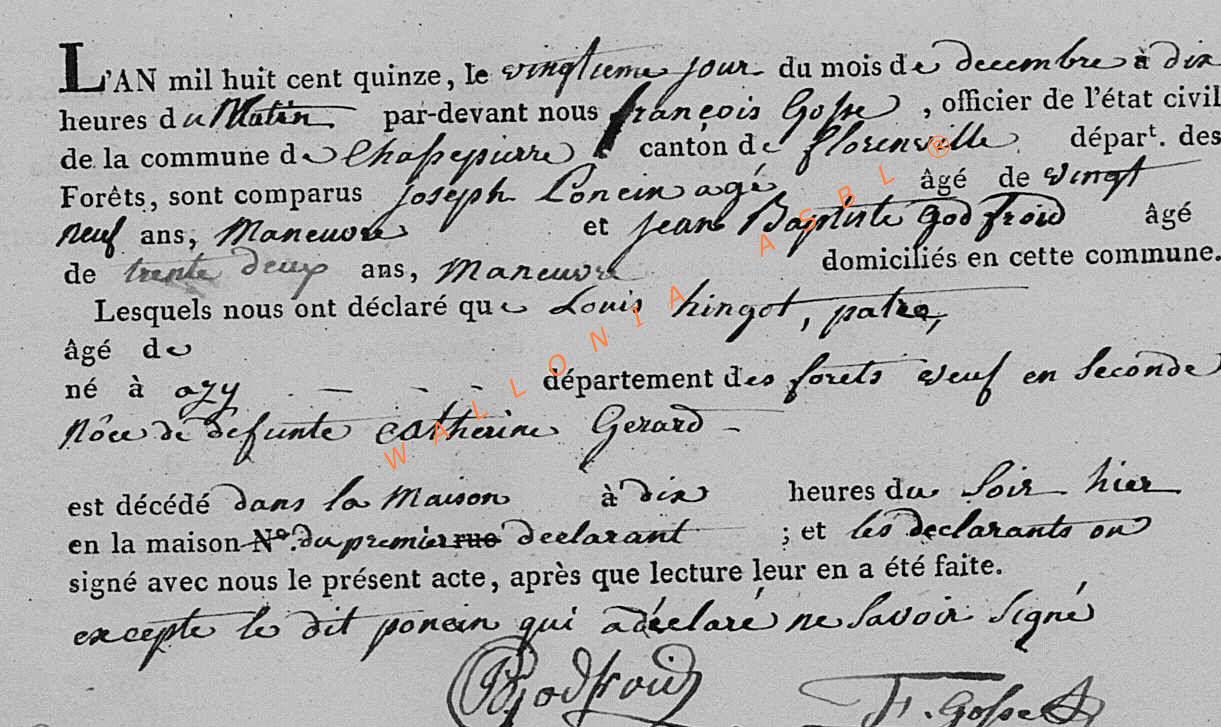 L'AN mil huit cent quinze, le vingtieme jour du mois de decembre à dix
heures du Matin par-devant nous françois Gosse, officier de l'état civil
de la commune de Chassepierre canton de florenville départ. des
Forêts, sont comparus joseph Poncin agé âgé de vingt
neuf ans, Maneuvre et jean Baptiste godfroid âgé
de trente deux ans, Maneuvre domiciliés en cette commune.
Lesquels nous ont déclaré que Louis hingot, patre,
âgé de
né à azy - - - département des forets veuf en seconde
Nôce de defunte catherine Gerard -
est décédé dans la Maison à dix heures du soir hier
en la maison N°. du premier rue declarant ; et les declarants on
signé avec nous le présent acte, après que lecture leur en a été faite.
excepte le dit poncin qui a déclaré ne savoir signé
Godfroid F. Gosse
WALLONIA ASBL ®